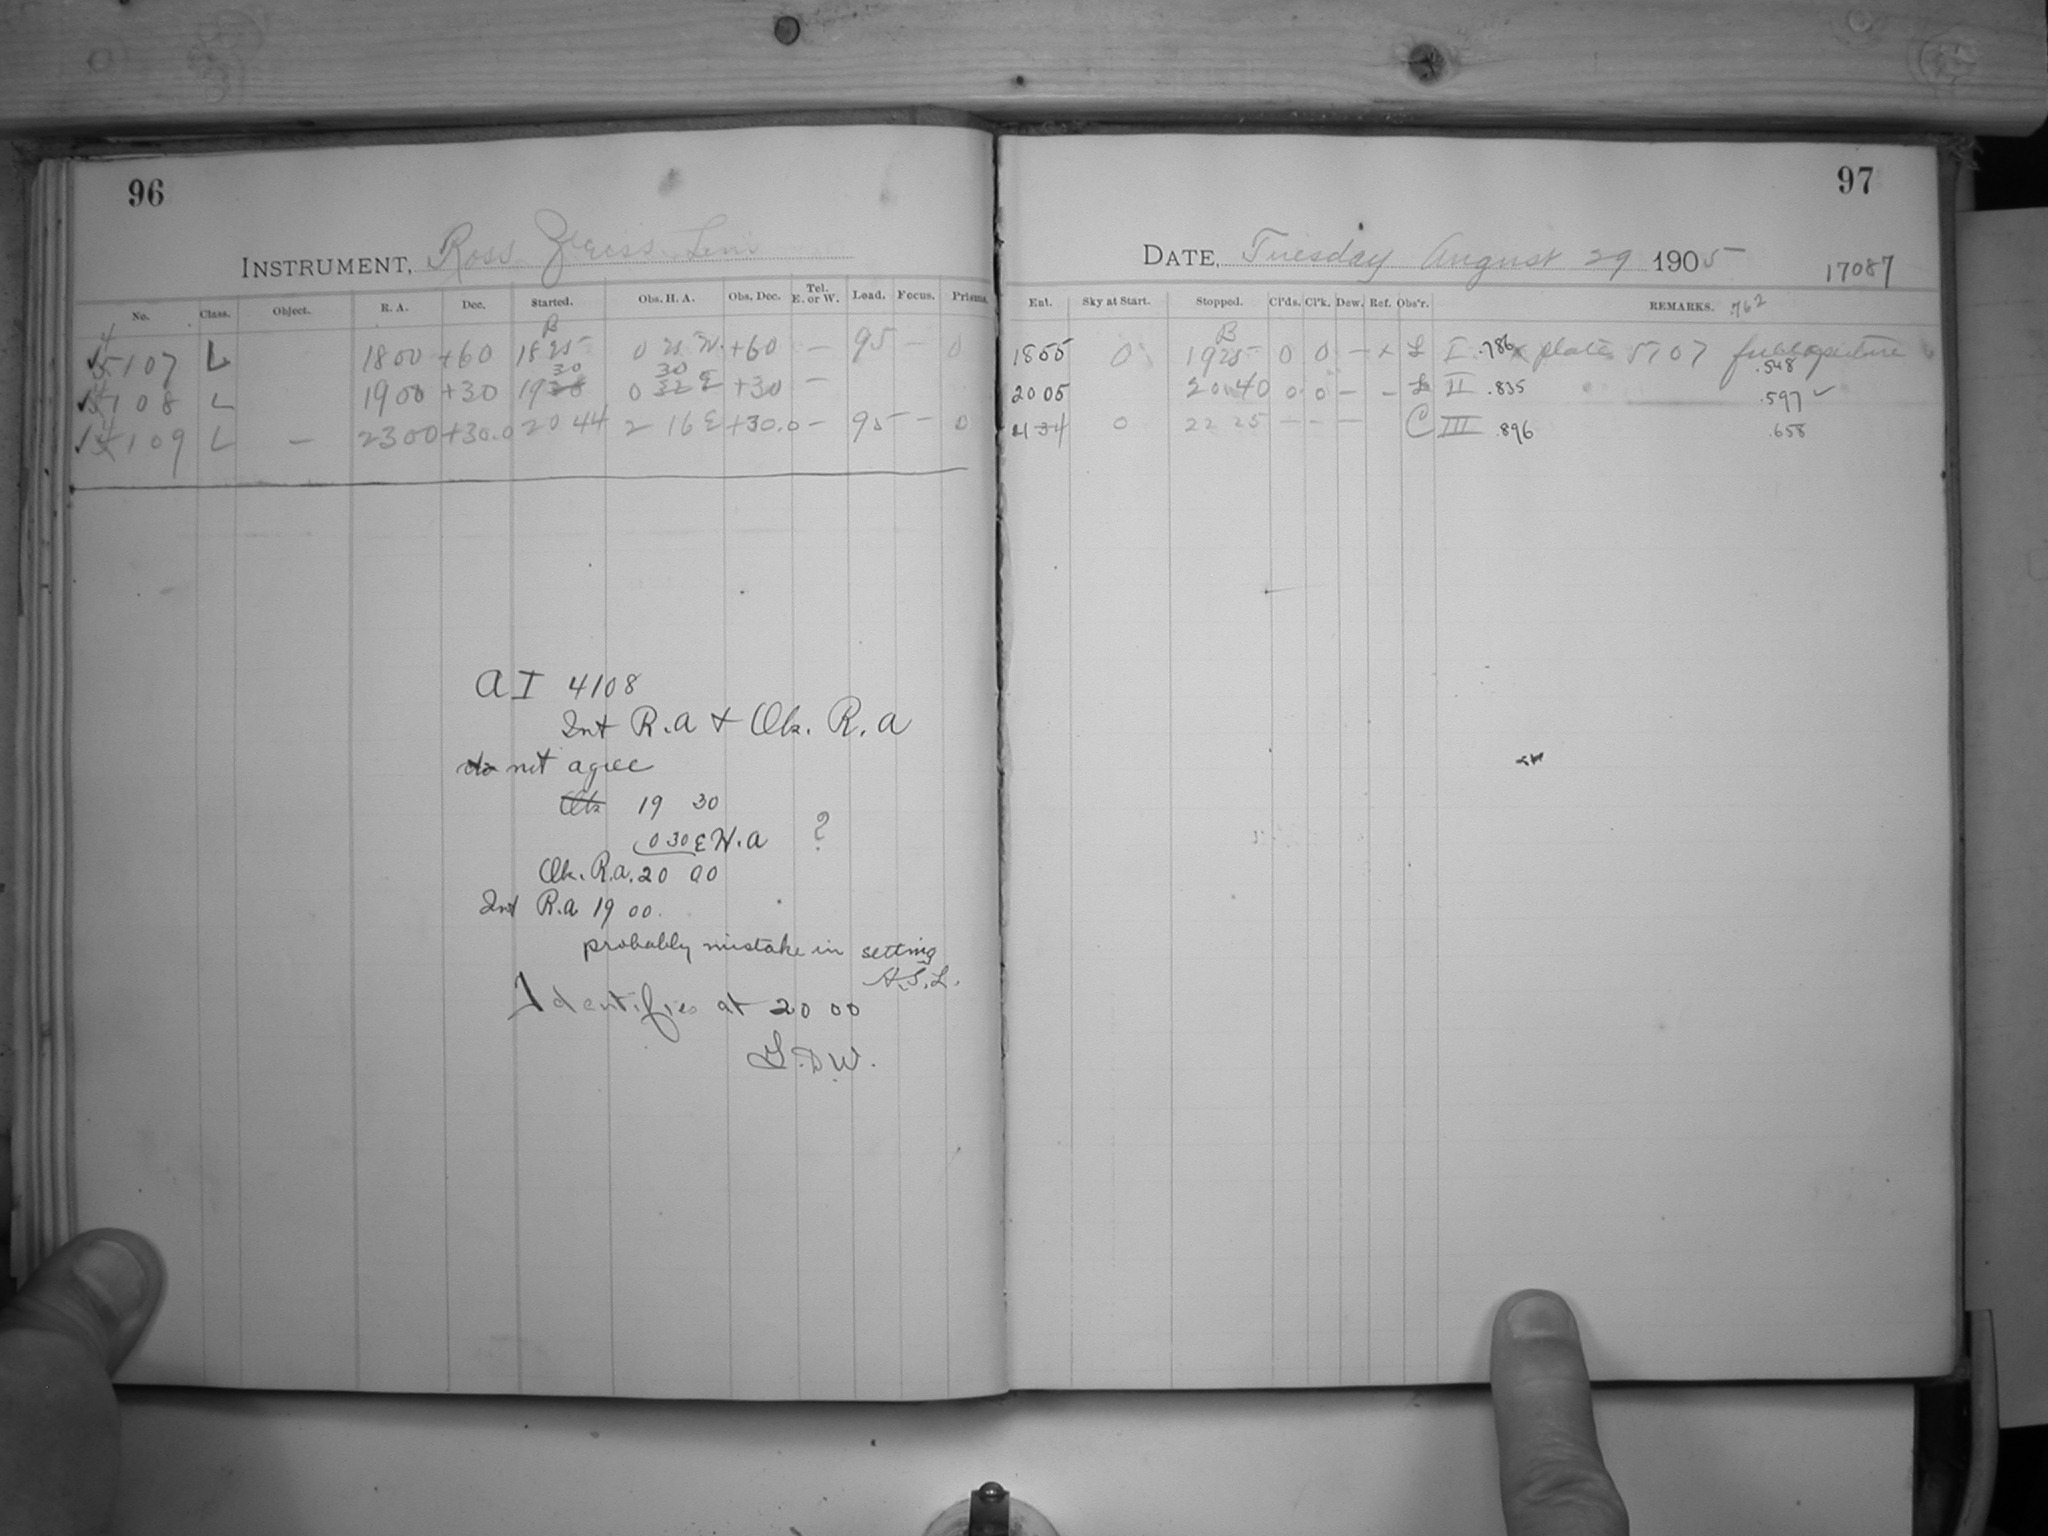 96
INSTRUMENT, Ross Zeiss Lens
No. Class. Object. R. A. Dec. Started. Obs. H. A. Obs. Dec. Tel. E. or W. Load. Focus. Prisms.
4107 L 1800 +60 1825 0 25 W. +60 — 95 — 0
4108 L 1900 +30 1930 0 30 E +30 —
4109 L — 2300 +30.0 20 44 2 16 E +30.0 — 95 — 0
A I 4108
Int R.A + Ob. R.A
do not agree
Ob 19 30
0 30 E H.A ?
Ob. R.A. 20 00
Int R.A 19 00.
probably mistake in setting
A.S.L.
Identifies at 20 00
97
DATE, Tuesday August 29 1905
17087
Ent. Sky at Start. Stopped. Cl'ds. Cl'k. Dew. Ref. Obs'r. REMARKS. .762
1855 0 B 1925 0 0 — x L I .786 x plate 5707 full aperture .548
2005 20 40 0 0 — – L II .835 .597 ✓
2134 0 22 25 — — — C III .896 .658